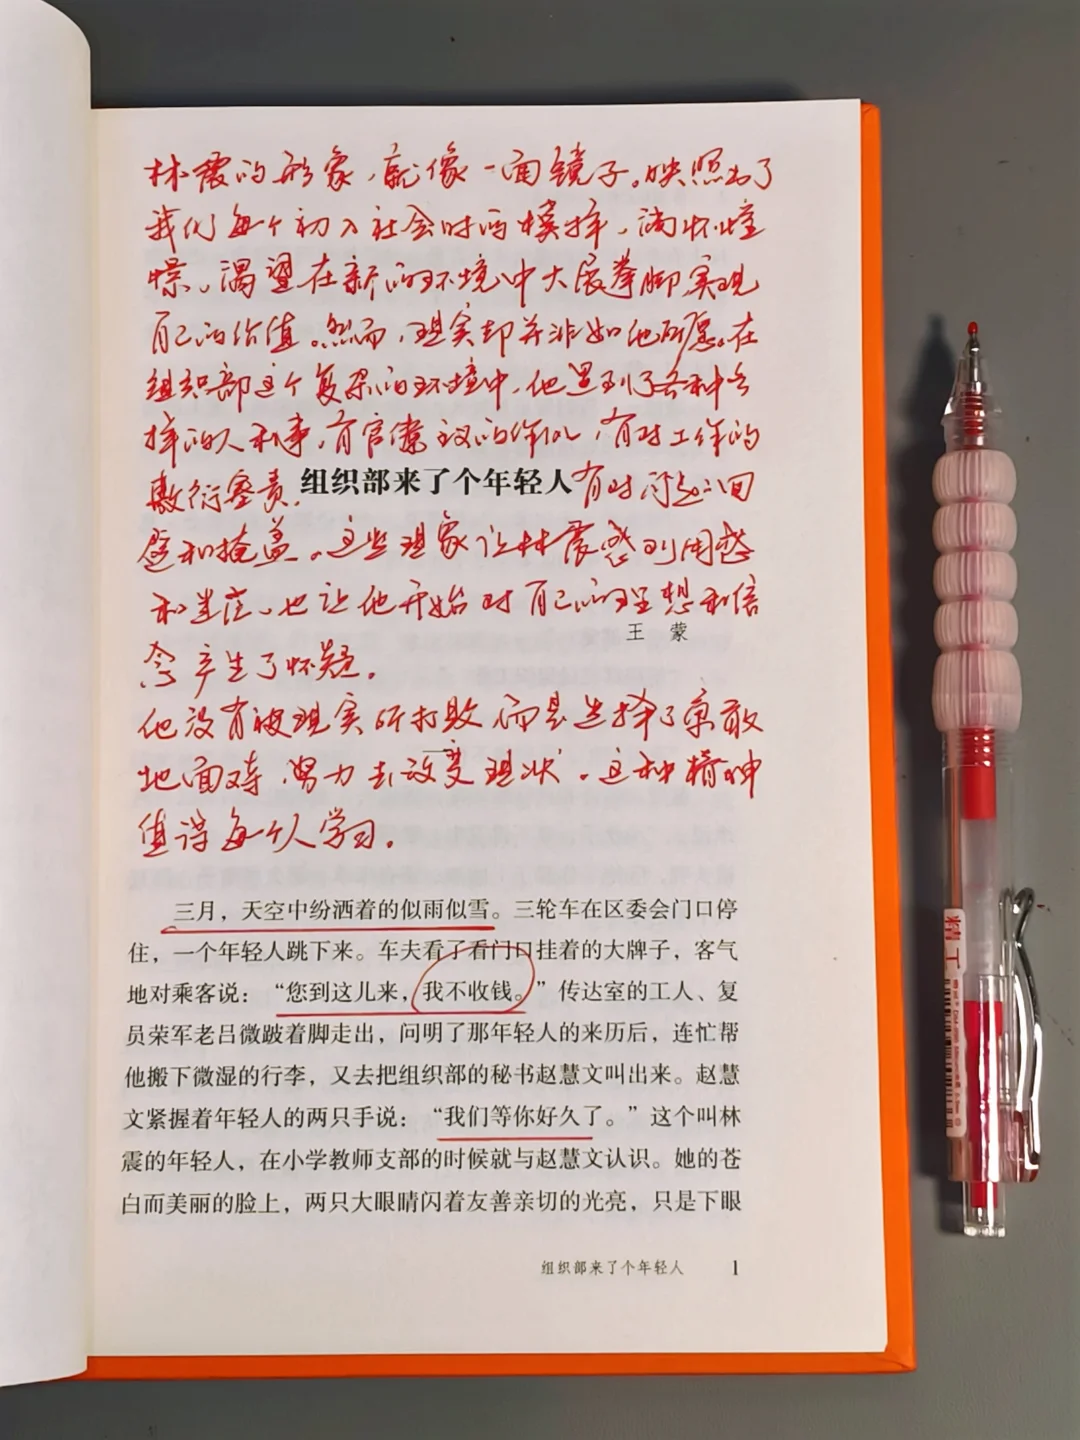 林震的形象,就像一面镜子。映照出了
我们每个初入社会时的模样,满怀憧
憬、渴望在新的环境中大展拳脚,实现
自己的价值。然而,现实却并非如他所愿。在
组织部这个复杂的环境中,他遇到了各种各
样的人和事,有官僚主义的作风,有对工作的
敷衍塞责,
组织部来了个年轻人
有对问题的回
避和掩盖。这些现象让林震感到困惑
和迷茫,也让他开始对自己的理想和信
王 蒙
念产生了怀疑。
他没有被现实所打败,而是选择了勇敢
地面对,努力去改变现状。这种精神
值得每个人学习。
三月,天空中纷洒着的似雨似雪。三轮车在区委会门口停
住,一个年轻人跳下来。车夫看了看门口挂着的大牌子,客气
地对乘客说:“您到这儿来,我不收钱。”传达室的工人、复
员荣军老吕微跛着脚走出,问明了那年轻人的来历后,连忙帮
他搬下微湿的行李,又去把组织部的秘书赵慧文叫出来。赵慧
文紧握着年轻人的两只手说:“我们等你好久了。”这个叫林
震的年轻人,在小学教师支部的时候就与赵慧文认识。她的苍
白而美丽的脸上,两只大眼睛闪着友善亲切的光亮,只是下眼
组织部来了个年轻人 1
精工